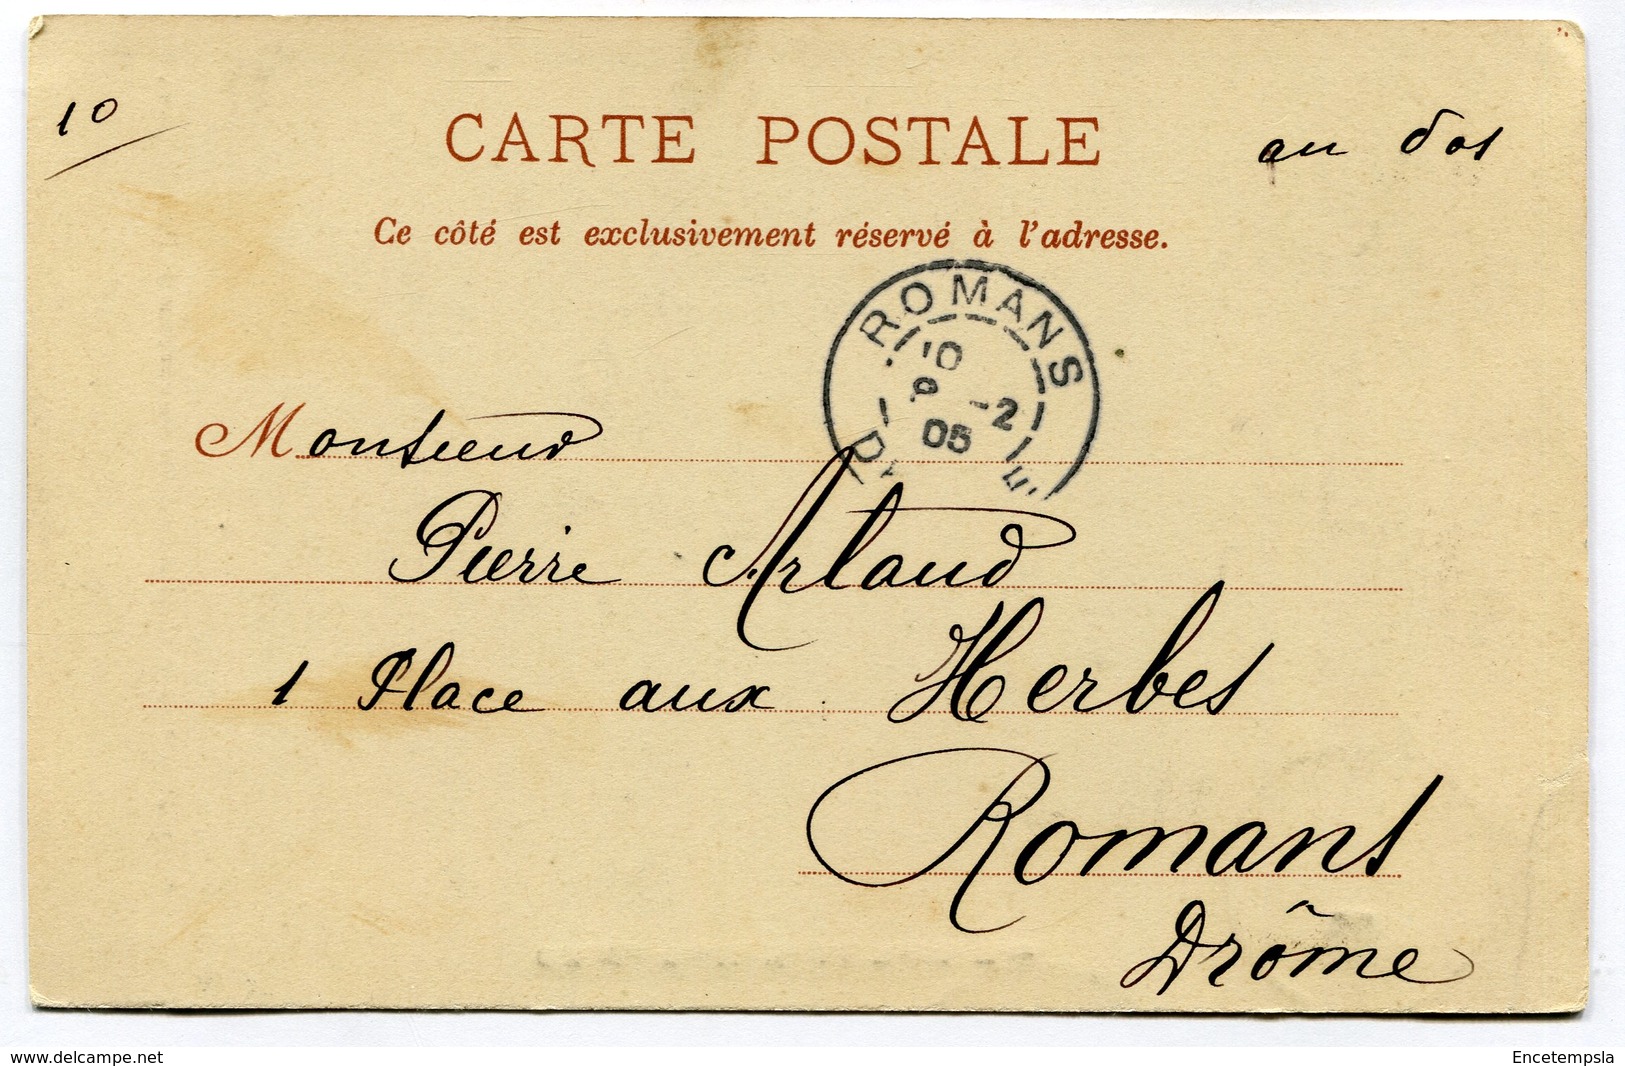 10
CARTE POSTALE
au dos
Ce côté est exclusivement réservé à l'adresse.
ROMANS
10
9 -2
05
Monsieur
Pierre Artaud
1 Place aux Herbes
Romans
Drôme
www.delcampe.net
Encetempsla